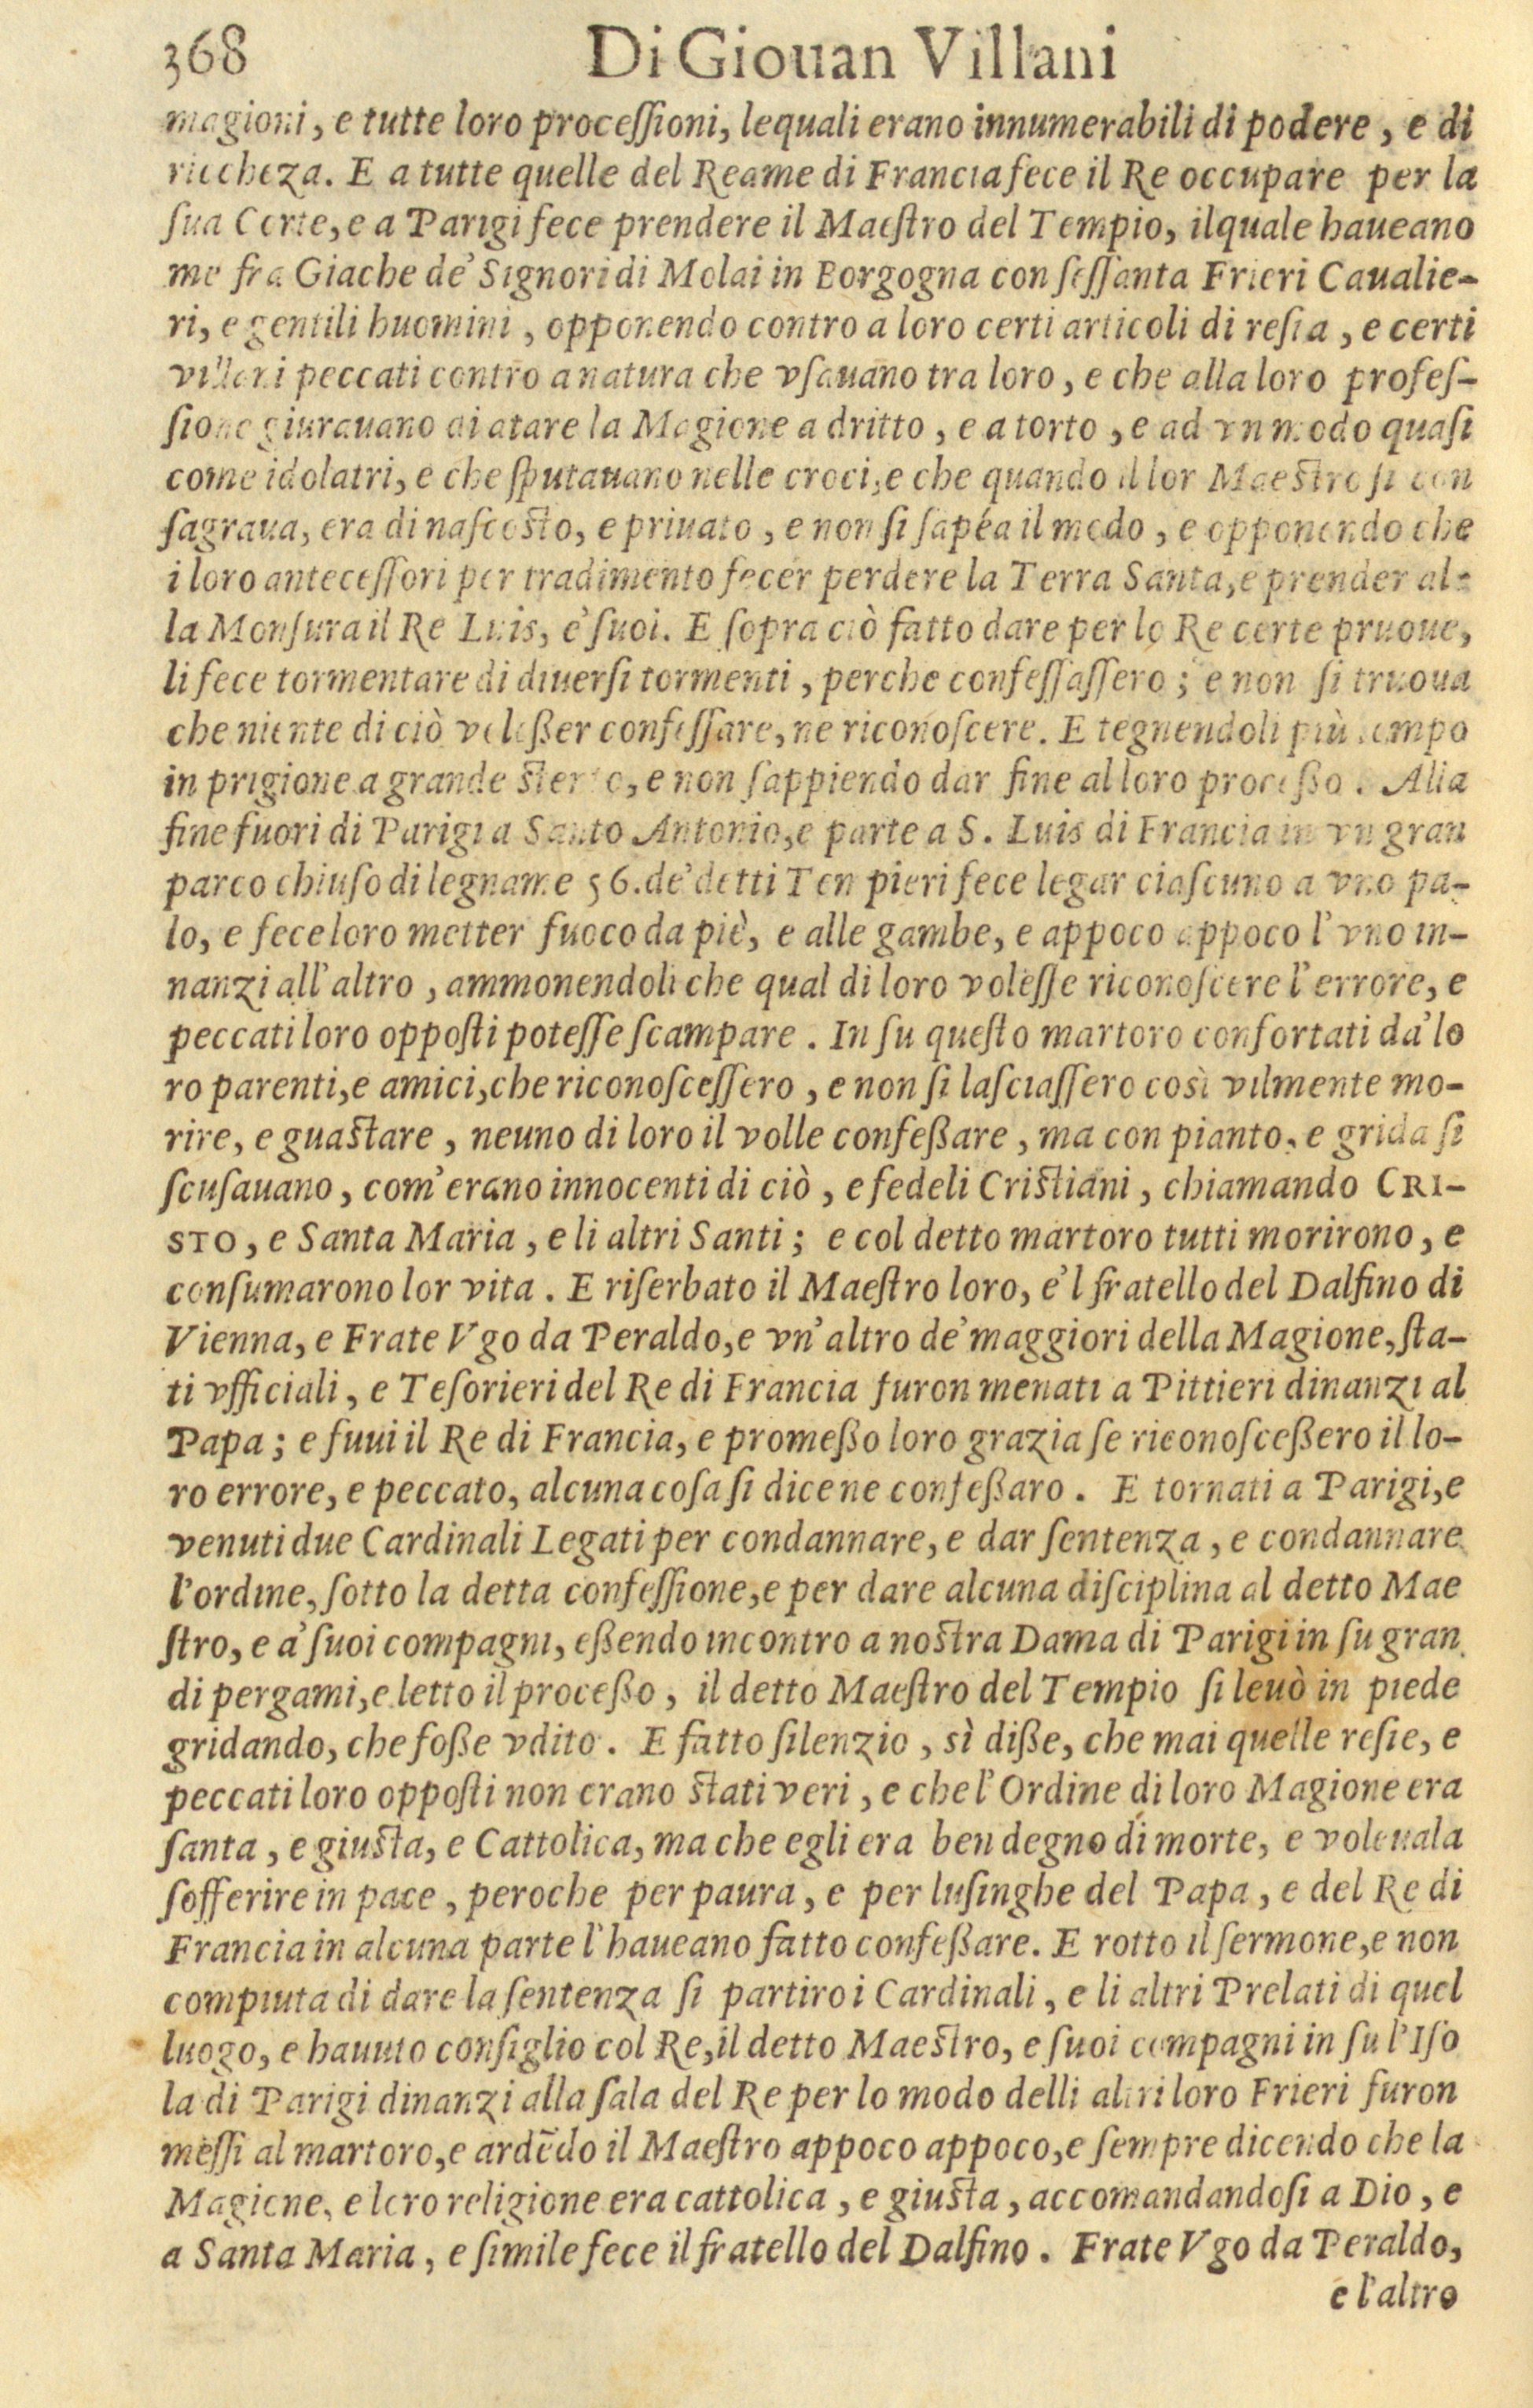 368 Di Giouan Villani
magioni, e tutte loro proceſſioni, lequali erano innumerabili di podere, e di
riccheza. E a tutte quelle del Reame di Francia fece il Re occupare per la
ſua Corte, e a Parigi fece prendere il Maeſtro del Tempio, ilquale haueano
me fra Giache de' Signori di Molai in Borgogna con ſeſſanta Frieri Caualie-
ri, e gentili huomini, opponendo contro a loro certi articoli di reſia, e certi
villani peccati contro a natura che vſauano tra loro, e che alla loro profeſ-
ſione giurauano di atare la Magione a dritto, e a torto, e ad vn modo quaſi
come idolatri, e che ſputauano nelle croci, e che quando il lor Maeſtro ſi con
ſagraua, era di naſcoſto, e priuato, e non ſi ſapéa il modo, e opponendo che
i loro anteceſſori per tradimento fecer perdere la Terra Santa, e prender al-
la Monſura il Re Luis, e' ſuoi. E ſopra ciò fatto dare per lo Re certe pruoue,
li fece tormentare di diuerſi tormenti, perche confeſſaſſero; e non ſi truoua
che niente di ciò voleßer confeſſare, ne riconoſcere. E tegnendoli più tempo
in prigione a grande ſtento, e non ſappiendo dar fine al loro proceßo. Alla
fine fuori di Parigi a Santo Antonio, e parte a S. Luis di Francia in vn gran
parco chiuſo di legname 56. de' detti Tenpieri fece legar ciaſcuno a vno pa-
lo, e fece loro metter fuoco da piè, e alle gambe, e appoco appoco l'vno in-
nanzi all'altro, ammonendoli che qual di loro voleſſe riconoſcere l'errore, e
peccati loro oppoſti poteſſe ſcampare. In ſu queſto martoro confortati da' lo
ro parenti, e amici, che riconoſceſſero, e non ſi laſciaſſero così vilmente mo-
rire, e guaſtare, neuno di loro il volle confeßare, ma con pianto, e grida ſi
ſcuſauano, com' erano innocenti di ciò, e fedeli Criſtiani, chiamando CRI-
STO, e Santa Maria, e li altri Santi; e col detto martoro tutti morirono, e
conſumarono lor vita. E riſerbato il Maeſtro loro, e'l fratello del Dalfino di
Vienna, e Frate Vgo da Peraldo, e vn'altro de' maggiori della Magione, ſta-
ti vfficiali, e Teſorieri del Re di Francia furon menati a Pittieri dinanzi al
Papa; e fuui il Re di Francia, e promeßo loro grazia ſe riconoſceßero il lo-
ro errore, e peccato, alcuna coſa ſi dice ne confeßaro. E tornati a Parigi, e
venuti due Cardinali Legati per condannare, e dar ſentenza, e condannare
l'ordine, ſotto la detta confeſſione, e per dare alcuna diſciplina al detto Mae
ſtro, e a' ſuoi compagni, eßendo incontro a noſtra Dama di Parigi in ſu gran
di pergami, e letto il proceßo, il detto Maeſtro del Tempio ſi leuò in piede
gridando, che foße vdito. E fatto ſilenzio, sì diße, che mai quelle reſie, e
peccati loro oppoſti non erano ſtati veri, e che l'Ordine di loro Magione era
ſanta, e giuſta, e Cattolica, ma che egli era ben degno di morte, e voleuala
ſofferire in pace, peroche per paura, e per luſinghe del Papa, e del Re di
Francia in alcuna parte l'haueano fatto confeßare. E rotto il ſermone, e non
compiuta di dare la ſentenza ſi partiro i Cardinali, e li altri Prelati di quel
luogo, e hauuto conſiglio col Re, il detto Maeſtro, e ſuoi compagni in ſu l'Iſo
la di Parigi dinanzi alla ſala del Re per lo modo delli altri loro Frieri furon
meſſi al martoro, e ardẽdo il Maeſtro appoco appoco, e ſempre dicendo che la
Magione, e loro religione era cattolica, e giuſta, accomandandoſi a Dio, e
a Santa Maria, e ſimile fece il fratello del Dalfino. Frate Vgo da Peraldo,
e l'altro